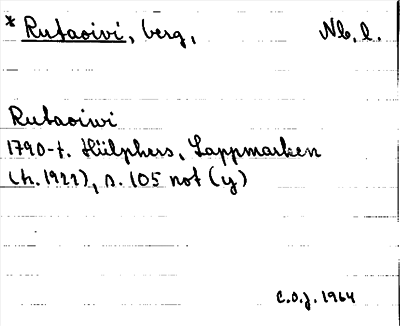 * Rutaoivi, berg,    Nb. l.
Rutaoiwi
1790-t. Hülphers, Lappmarken
(h. 1922), s. 105 not (y)
C.O.J. 1964